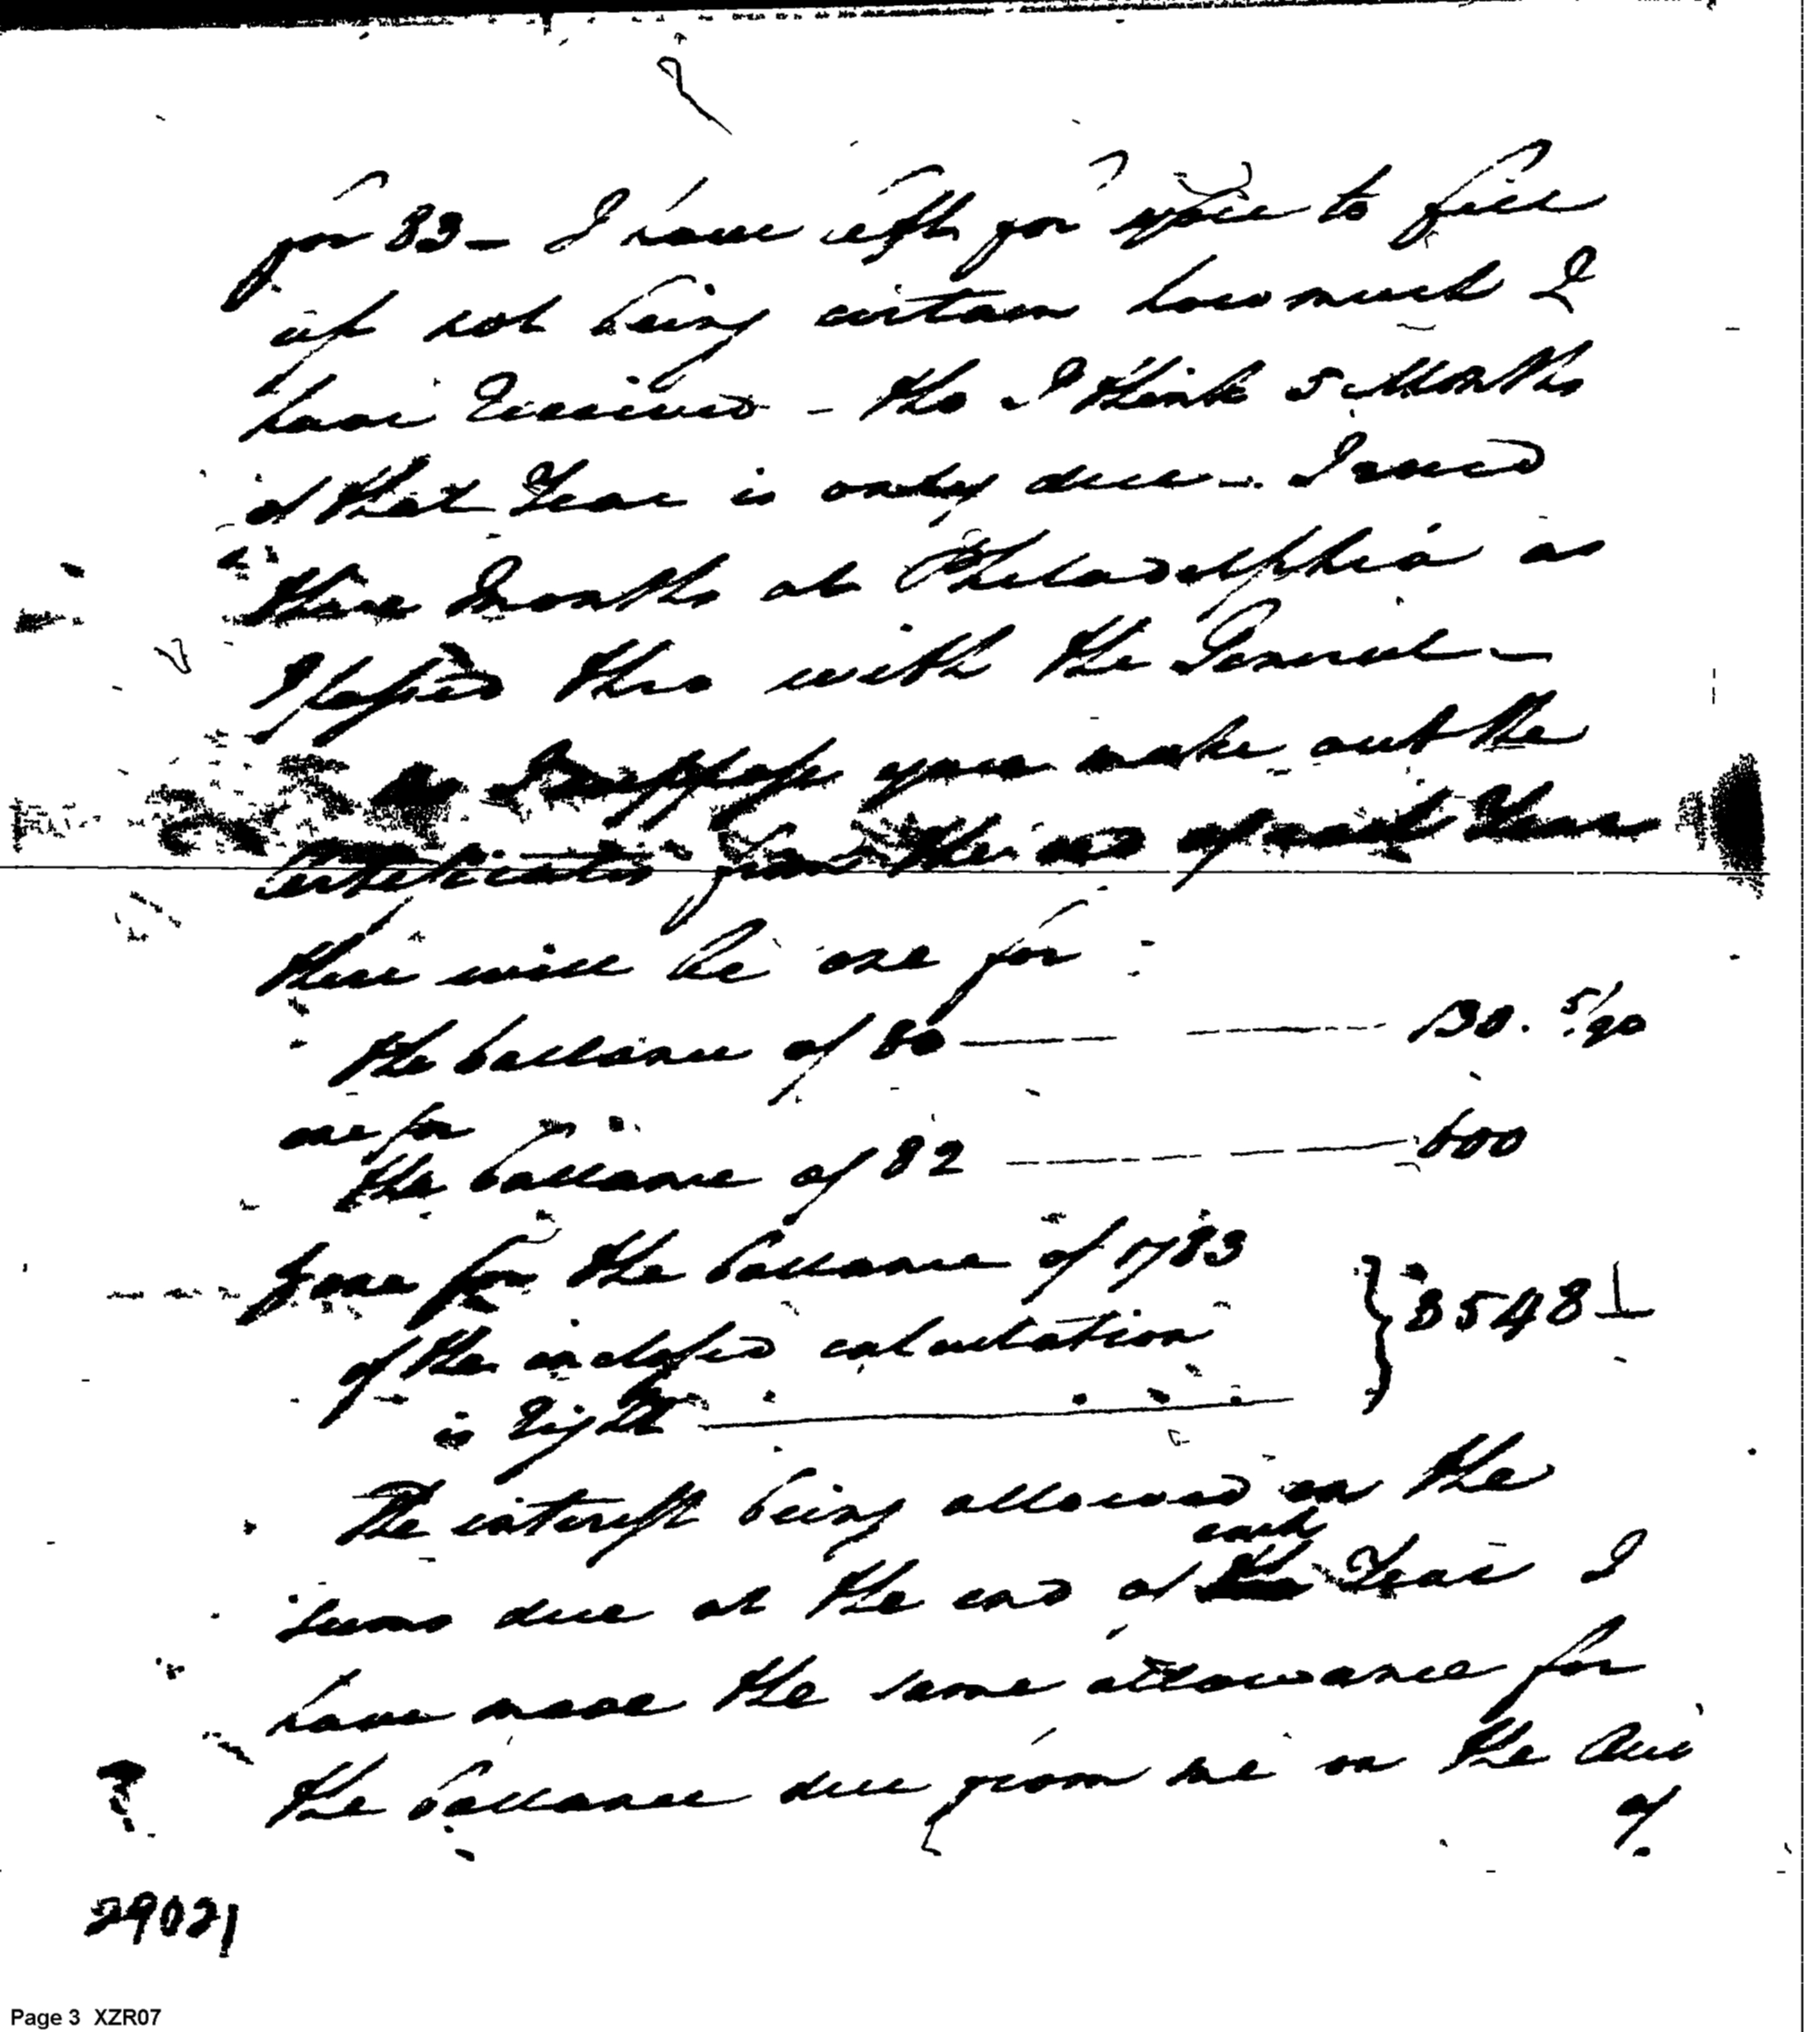 for 83 – I have left for you to fill
up not being certain how much I
have Received – tho I think 5 Months
of that Year is only due – I recd
three Months at Philadelphia as
I passed thro with the General –
As I suppose you make out the
Certificates from the end of each Year
there will be one for
the ballance of 80 — — 130. 5/90
one for
the ballance of 82 — — 600
& one for the ballance of 1783
if the inclosed calculation } 354 8
is right —
The interest being allowed on the
each
sums due at the end of the Year I
have made the same allowance for
the ballance due from me on the
of
29021
Page 3 XZR07